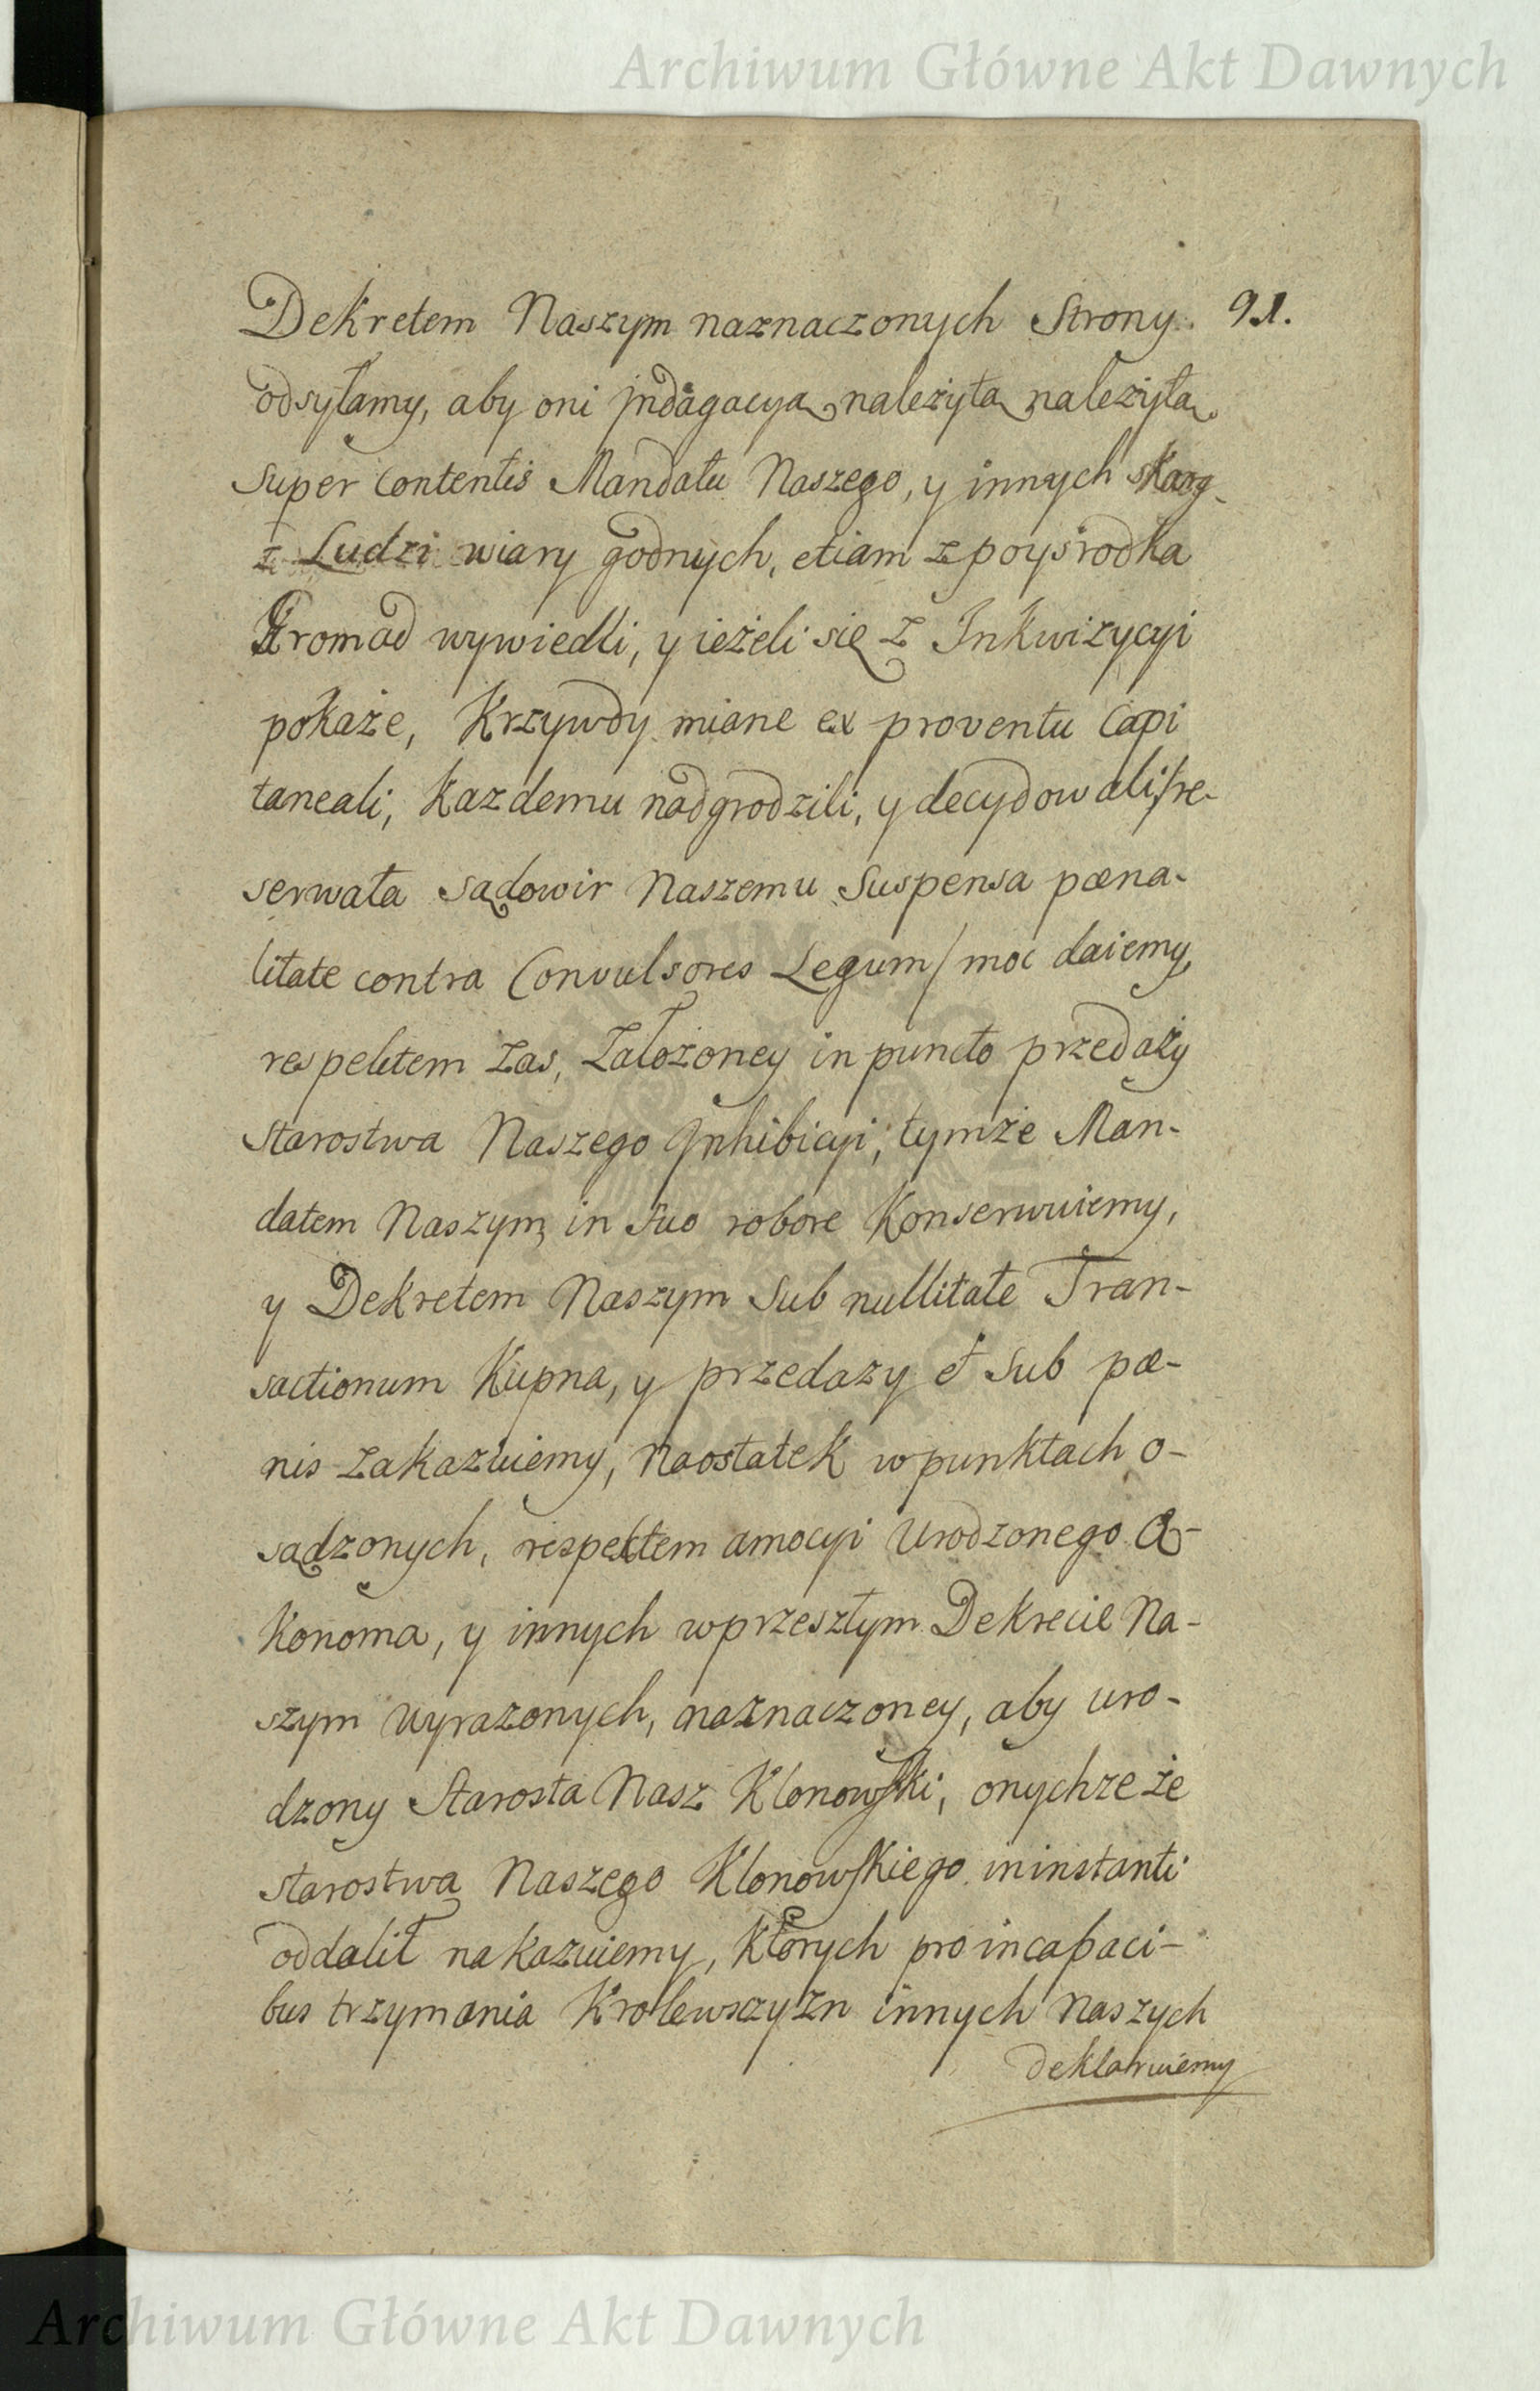 Archiwum Główne Akt Dawnych
91.
Dekretem Naszym naznaczonych Strony
odsyłamy, aby oni jndagacyą należytą należytą
super contentis Mandatu Naszego, y innych skarg
z Ludzi wiary godnych, etiam zpoyśrodka
Gromad wywiedli, y ieżeli się z Inkwizycyi
pokaże, Krzywdy miane ex proventu Capi
taneali, kazdemu nadgrodzili, y decydowali /re-
serwata sądowir Naszemu Suspensa pœna-
litate contra Convulsores Legum/ moc daiemy,
respektem zas, Założoney in puncto przedaży
starostwa Naszego Jnhibicyi, tymże Man-
datem Naszym in suo robore Konserwuiemy,
y Dekretem Naszym Sub nullitate Tran-
sactionum Kupna, y przedazy et sub pœ-
nis zakazuiemy, naostatek w punktach o-
sądzonych, respektem amocyi Urodzonego Œ-
konoma, y innych wprzeszłym Dekrecie Na-
szym wyrazonych, naznaczoney, aby uro-
dzony Starosta Nasz Klonowski, onychze że
starostwa Naszego Klonowskiego in instanti
oddalił nakazuiemy, Których pro incapaci-
bus trzymania Krolewszyzn innych Naszych
deklaruiemy
Archiwum Główne Akt Dawnych